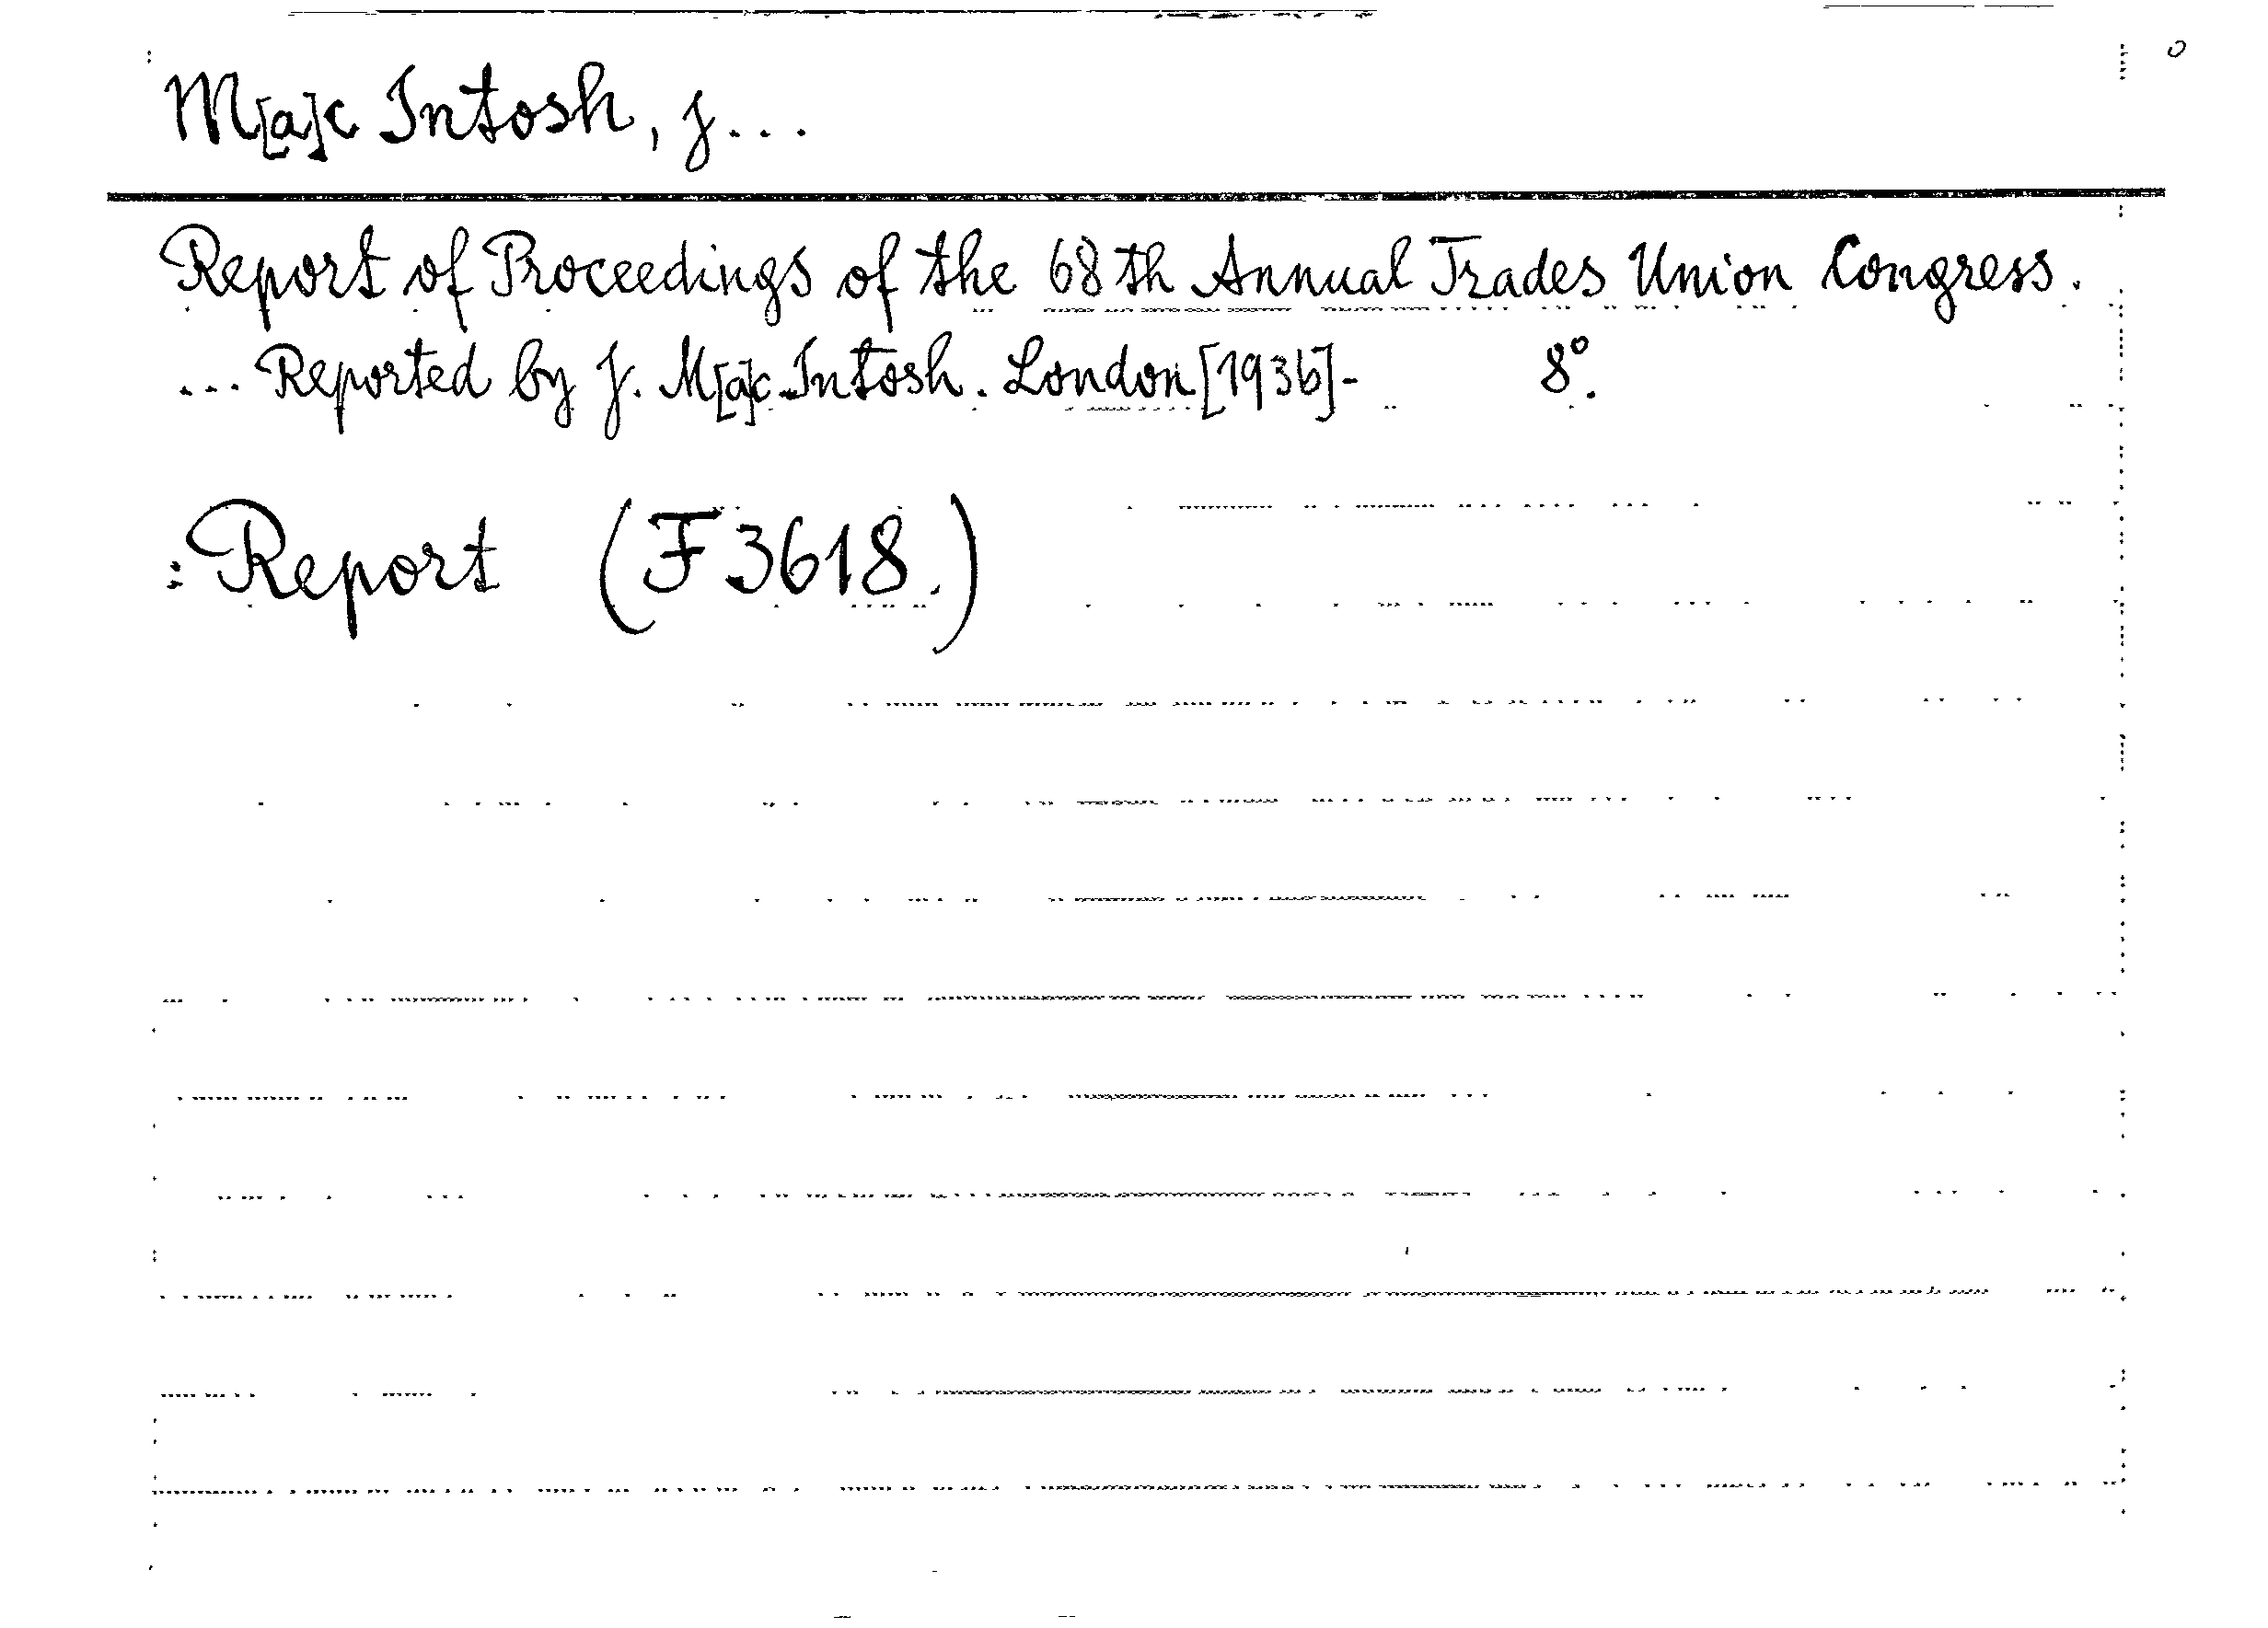 M[a]c Intosh, J...
Report of Proceedings of the 68th Annual Trades Union Congress.
... Reported by J. M[a]c Intosh. London [1936]- 8°.
: Report (F 3618.)